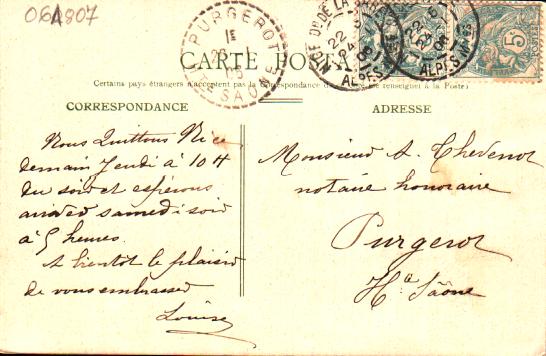 061807
PURGEROT
Hte SAÔNE
CARTE POSTALE
Certains pays étrangers n'acceptent pas la correspondance d
se renseigner à la Poste)
CORRESPONDANCE
ADRESSE
Nous Quittons Nice
demain Jeudi à 10 H
du soir et espérons
arriver samedi soir
à 5 heures.
A bientot le plaisir
de vous embrasser
Louise
Monsieur A. Thevenot
notaire honoraire
Purgerot
Hte Saône
NICE
22
24
ALPES
5